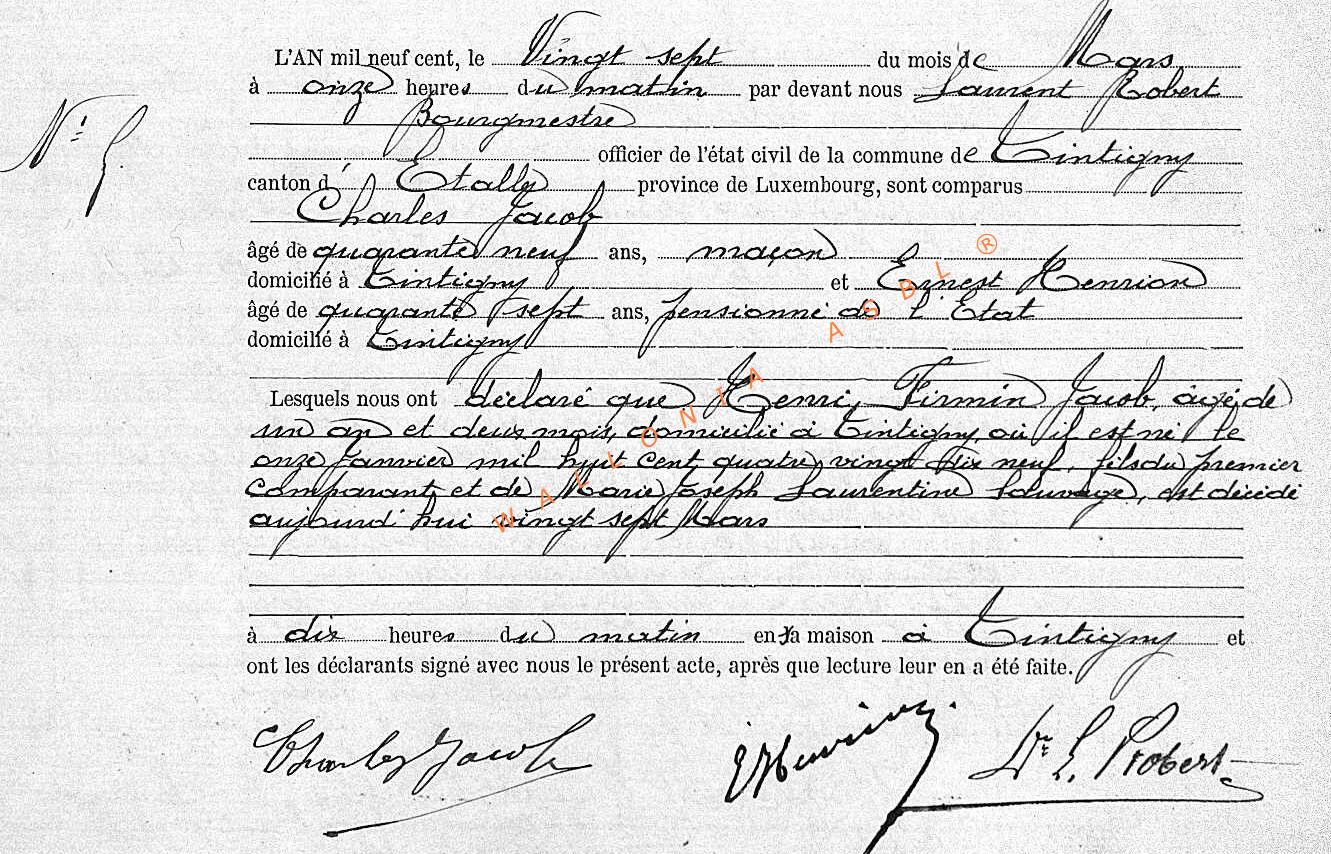 L'AN mil neuf cent, le Vingt sept du mois de Mars
à onze heures du matin par devant nous Laurent Robert
Bourgmestre
N°
officier de l'état civil de la commune de Tintigny
canton d' Etalle province de Luxembourg, sont comparus
Charles Jacob
âgé de quarante neuf ans, maçon
domicilié à Tintigny et Ernest Henrion
âgé de quarante sept ans, pensionné de l'Etat
domicilié à Tintigny
Lesquels nous ont déclaré que Henri, Firmin Jacob, âgé de
un an et deux mois, domicilié à Tintigny, où il est né le
onze Janvier mil huit cent quatre vingt dix neuf, fils du premier
comparant et de Marie Joseph Laurentine Sauvage, est décédé
aujourd'hui vingt sept Mars
WALLONIA ASBL ®
à dix heures du matin en sa maison à Tintigny et
ont les déclarants signé avec nous le présent acte, après que lecture leur en a été faite.
Charles Jacob EHenrion Dr L. Robert